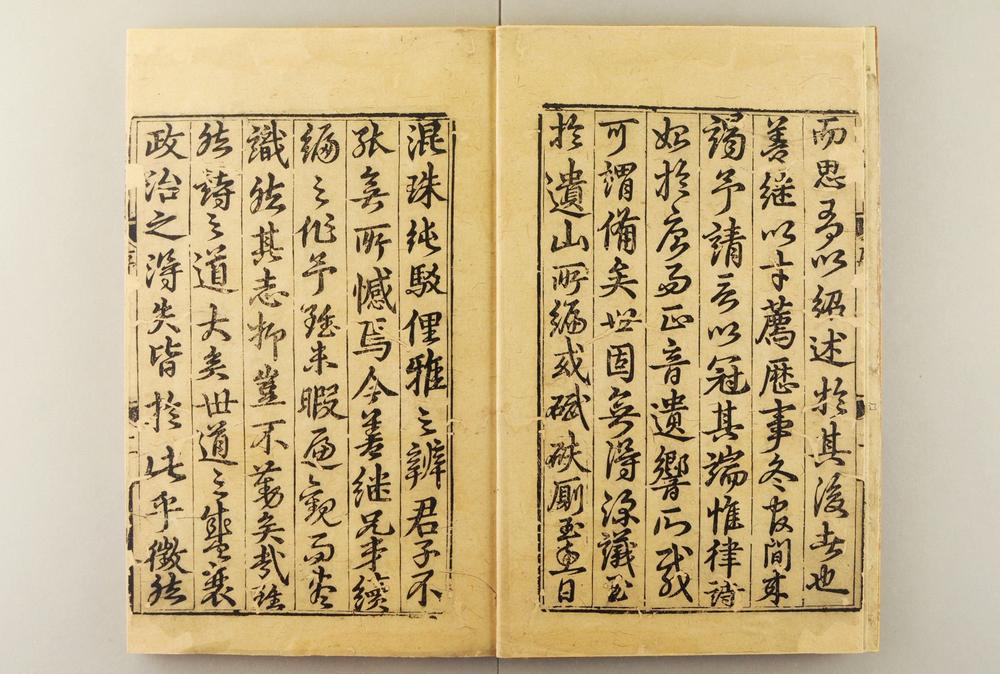 而思有以紹述於其後者也
善継以才薦歴事冬官間来
謁予請言以冠其端惟律詩
始於唐而正音遺響所載
可謂備矣世固無得深議至
於遺山所編或碔砆厠玉魚目
混珠純駁俚雅之辨君子不
能無所憾焉今善継兄弟續
編之作予雖未暇遍觀而盡
識然其志抑豈不勤矣哉雖
然詩之道大矣世道之盛衰
政治之得失皆於此乎徴然